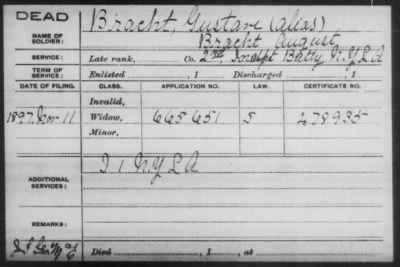 DEAD
Bracht, Gustave (alias),
NAME OF SOLDIER:
Bracht August
SERVICE: Late rank, Co. 2nd Indpt Batty N.Y.L.A
TERM OF SERVICE: Enlisted , 1 Discharged , 1
DATE OF FILING. CLASS. APPLICATION NO. LAW. CERTIFICATE NO.
Invalid,
1897 11 Widow, 665651 S 478935
Minor,
I 1 N.Y L A
ADDITIONAL SERVICES:
REMARKS:
Died , 1 , at